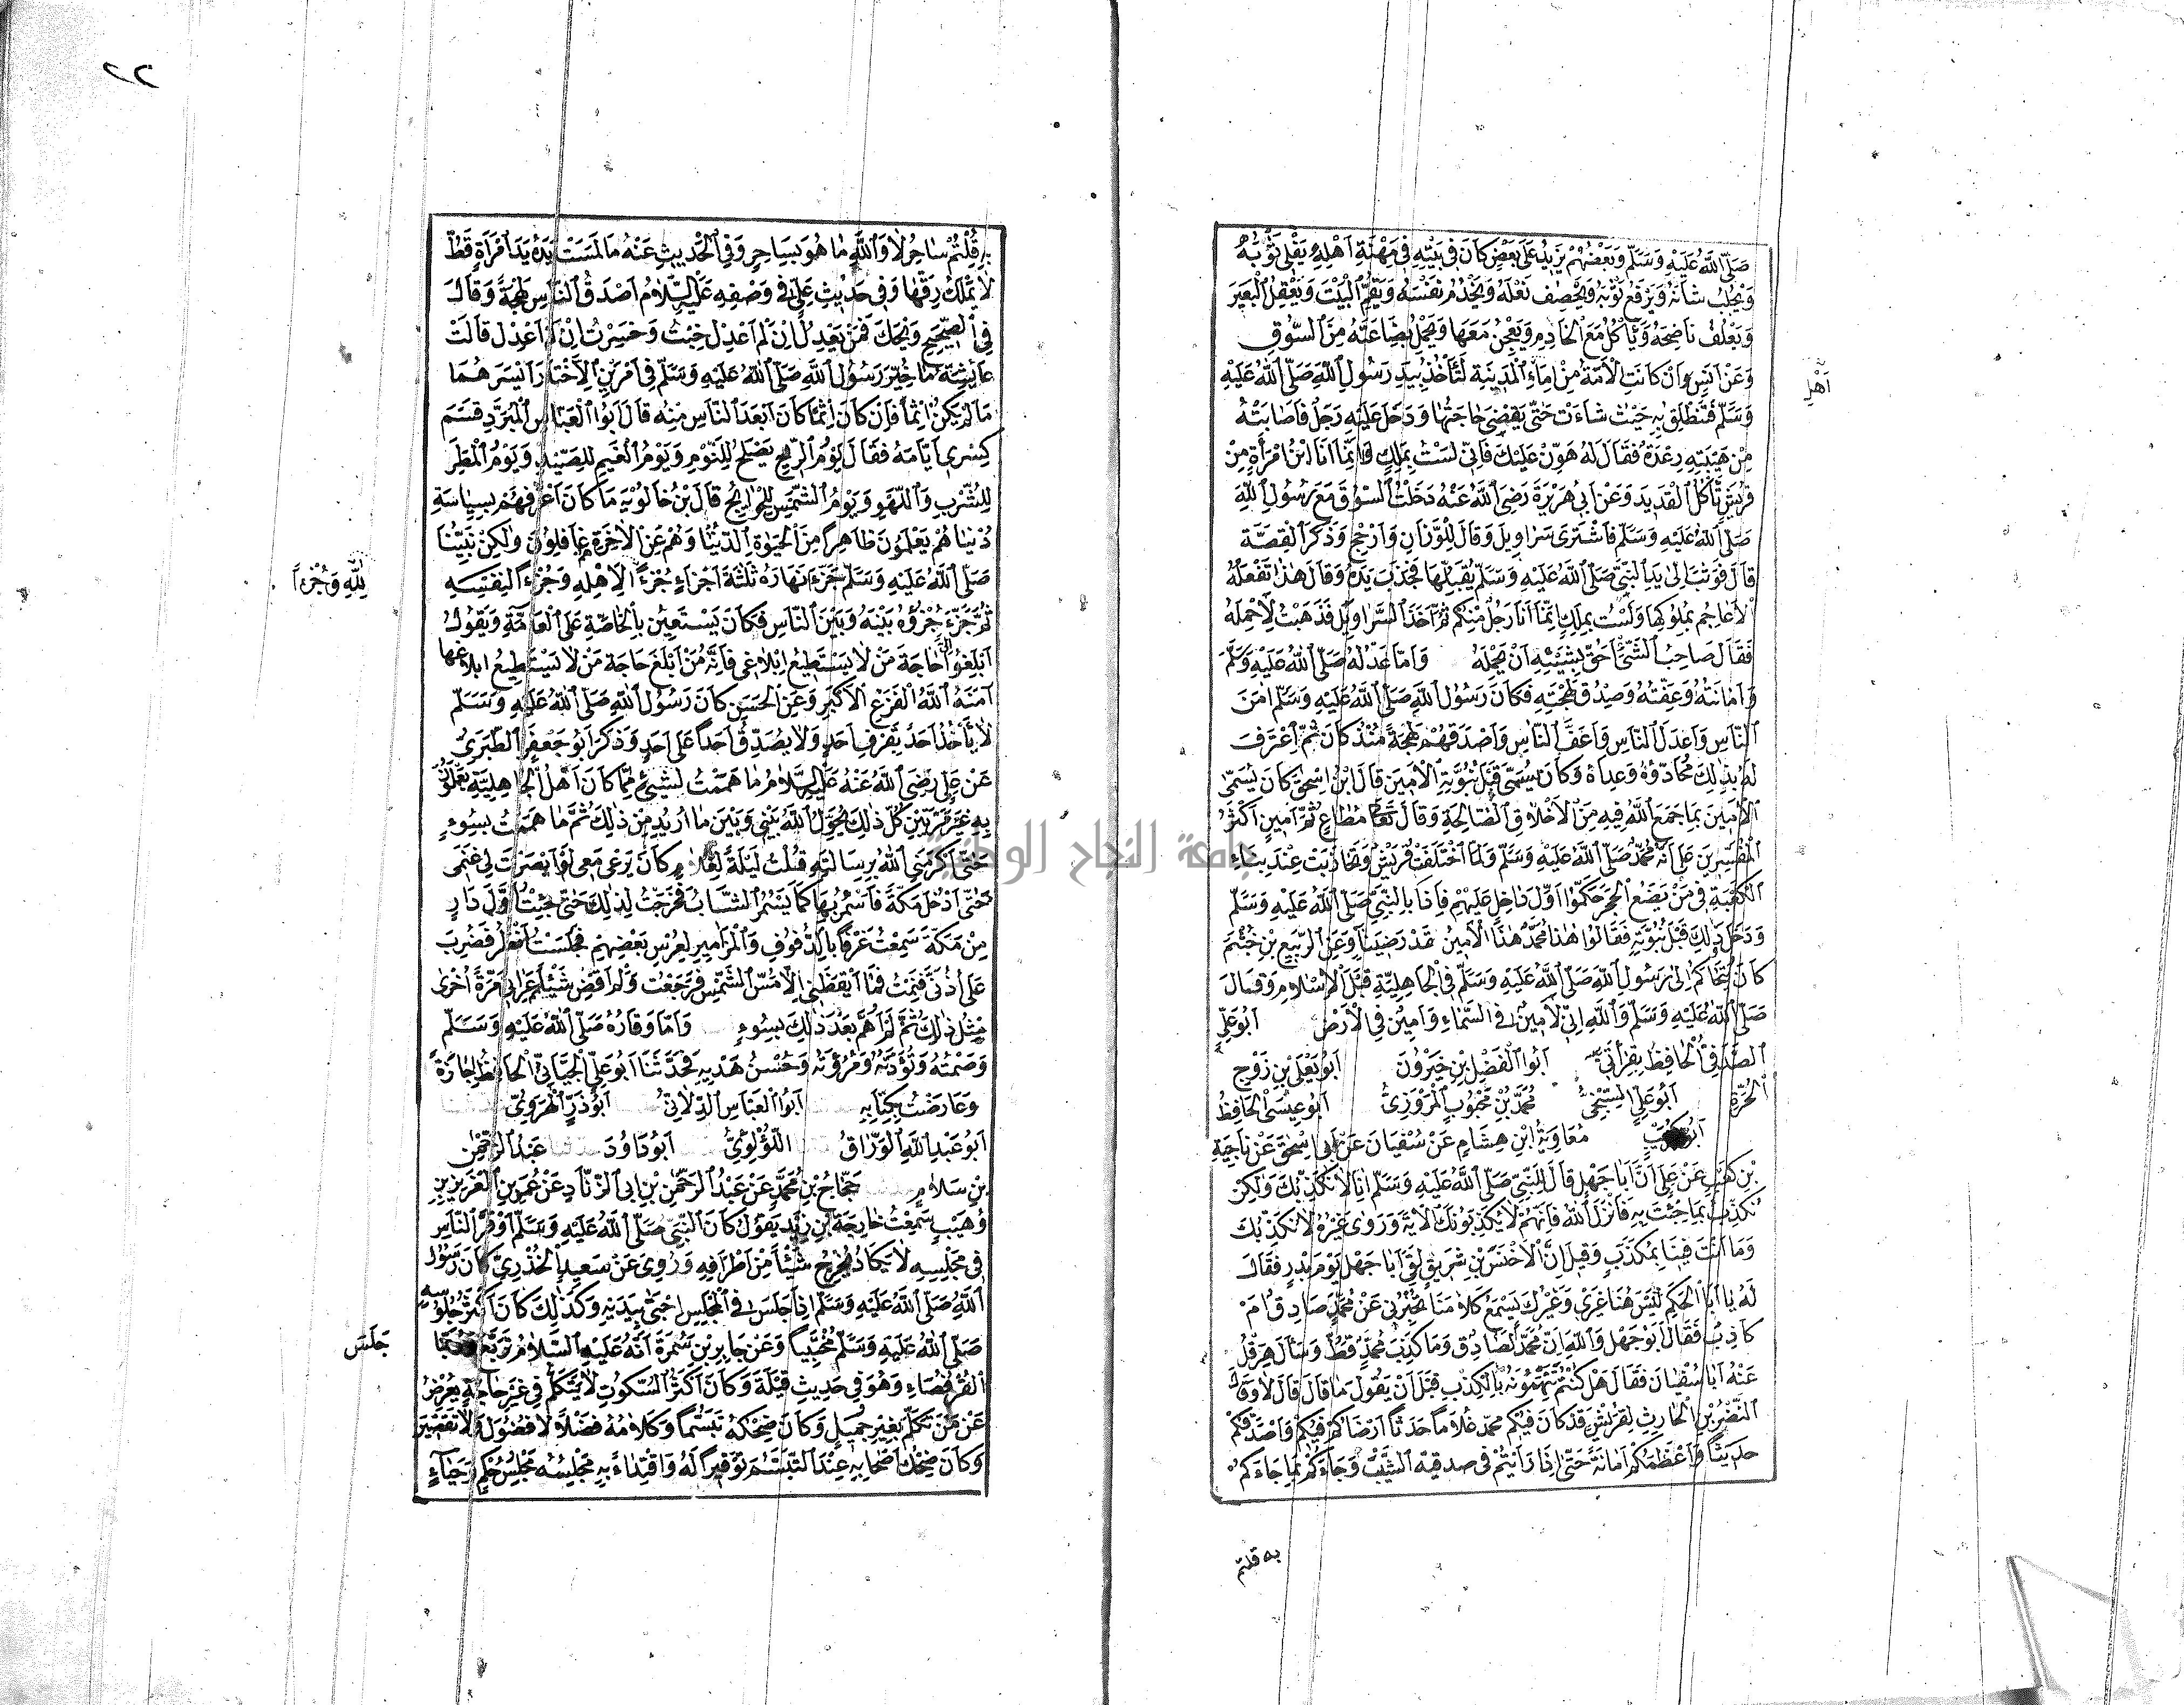 صَلَّى اللَّهُ عَلَيْهِ وَسَلَّمَ وَبَعْضُهُمْ يَزِيدُ عَلَى بَعْضٍ كَانَ فِي بَيْتِهِ فِي مِهْنَةِ اَهْلِهِ يَفْلِي ثَوْبَهُ
وَيَحْلُبُ شَاتَهُ وَيَرْقَعُ ثَوْبَهُ وَيَخْصِفُ نَعْلَهُ وَيَخْدُمُ نَفْسَهُ وَيَقُمُّ الْبَيْتَ وَيَعْقِلُ الْبَعِيرَ
وَيَعْلِفُ نَاضِحَهُ وَيَأْكُلُ مَعَ الْخَادِمِ وَيَعْجِنُ مَعَهَا وَيَحْمِلُ بِضَاعَتَهُ مِنَ السُّوقِ
وَعَنْ اَنَسٍ وَاَنْ كَانَتِ الْاَمَةُ مِنْ اِمَاءِ الْمَدِينَةِ لَتَأْخُذُ بِيَدِ رَسُولِ اللَّهِ صَلَّى اللَّهُ عَلَيْهِ
اَهْلِ
وَسَلَّمَ فَتَنْطَلِقُ بِهِ حَيْثُ شَاءَتْ حَتَّى يَقْضِيَ حَاجَتَهَا وَدَخَلَ عَلَيْهِ رَجُلٌ فَاَصَابَتْهُ
مِنْ هَيْبَتِهِ رِعْدَةٌ فَقَالَ لَهُ هَوِّنْ عَلَيْكَ فَاِنِّي لَسْتُ بِمَلِكٍ وَاِنَّمَا اَنَا ابْنُ امْرَأَةٍ مِنْ
قُرَيْشٍ تَأْكُلُ الْقَدِيدَ وَعَنْ اَبِي هُرَيْرَةَ رَضِيَ اللَّهُ عَنْهُ دَخَلْتُ السُّوقَ مَعَ رَسُولِ اللَّهِ
صَلَّى اللَّهُ عَلَيْهِ وَسَلَّمَ فَاشْتَرَى سَرَاوِيلَ وَقَالَ لِلْوَزَّانِ وَاَرْجِحْ وَذَكَرَ الْقِصَّةَ
قَالَ فَوَثَبَ اِلَى يَدِ النَّبِيِّ صَلَّى اللَّهُ عَلَيْهِ وَسَلَّمَ يُقَبِّلُهَا فَجَذَبَ يَدَهُ وَقَالَ هٰذَا تَفْعَلُهُ
الْاَعَاجِمُ بِمُلُوكِهَا وَلَسْتُ بِمَلِكٍ اِنَّمَا اَنَا رَجُلٌ مِنْكُمْ ثُمَّ اَخَذَ السَّرَاوِيلَ فَذَهَبْتُ لِاَحْمِلَهُ
فَقَالَ صَاحِبُ الشَّيْءِ اَحَقُّ بِشَيْئِهِ اَنْ يَحْمِلَهُ وَاَمَّا عَدْلُهُ صَلَّى اللَّهُ عَلَيْهِ وَسَلَّمَ
وَاَمَانَتُهُ وَعِفَّتُهُ وَصِدْقُ لَهْجَتِهِ فَكَانَ رَسُولُ اللَّهِ صَلَّى اللَّهُ عَلَيْهِ وَسَلَّمَ اٰمَنَ
النَّاسِ وَاَعْدَلَ النَّاسِ وَاَعَفَّ النَّاسِ وَاَصْدَقَهُمْ لَهْجَةً مُنْذُ كَانَ ثُمَّ اعْتَرَفَ
لَهُ بِذٰلِكَ مُحَادُّوهُ وَعِدَاهُ وَكَانَ يُسَمَّى قَبْلَ نُبُوَّتِهِ الْاَمِينَ قَالَ ابْنُ اِسْحٰقَ كَانَ يُسَمَّى
الْاَمِينَ بِمَا جَمَعَ اللَّهُ فِيهِ مِنَ الْاَخْلَاقِ الصَّالِحَةِ وَقَالَ تَعَالَى مُطَاعٍ ثَمَّ اَمِينٍ اَكْثَرُ
الْمُفَسِّرِينَ عَلَى اَنَّهُ مُحَمَّدٌ صَلَّى اللَّهُ عَلَيْهِ وَسَلَّمَ وَلَمَّا اخْتَلَفَتْ قُرَيْشٌ وَتَحَازَبَتْ عِنْدَ بِنَاءِ
الْكَعْبَةِ فِي مَنْ يَضَعُ الْحَجَرَ حَكَّمُوا اَوَّلَ دَاخِلٍ عَلَيْهِمْ فَاِذَا بِالنَّبِيِّ صَلَّى اللَّهُ عَلَيْهِ وَسَلَّمَ
وَدَخَلَ ذٰلِكَ قَبْلَ نُبُوَّتِهِ فَقَالُوا هٰذَا مُحَمَّدٌ هٰذَا الْاَمِينُ قَدْ رَضِينَا وَعَنِ الرَّبِيعِ بْنِ خُثَيْمٍ
كَانَ يُتَحَاكَمُ اِلَى رَسُولِ اللَّهِ صَلَّى اللَّهُ عَلَيْهِ وَسَلَّمَ فِي الْجَاهِلِيَّةِ قَبْلَ الْاِسْلَامِ وَقَالَ
صَلَّى اللَّهُ عَلَيْهِ وَسَلَّمَ وَاللَّهِ اِنِّي لَاَمِينٌ فِي السَّمَاءِ وَاَمِينٌ فِي الْاَرْضِ اَبُو عَلِيٍّ
الصَّدَفِيُّ الْحَافِظُ بِقِرَأَتِي اَبُو الْفَضْلِ بْنُ خَيْرُونَ اَبُو يَعْلَى بْنِ زَوْجِ
الْحُرَّةِ اَبُو عَلِيٍّ السِّنْجِيُّ مُحَمَّدُ بْنُ مَحْبُوبٍ الْمَرْوَزِيُّ اَبُو عِيسَى الْحَافِظُ
اَبُو كُرَيْبٍ مُعَاوِيَةُ ابْنِ هِشَامٍ عَنْ سُفْيَانَ عَنْ اَبِي اِسْحٰقَ عَنْ نَاجِيَةَ
بْنِ كَعْبٍ عَنْ عَلِيٍّ اَنَّ اَبَا جَهْلٍ قَالَ لِلنَّبِيِّ صَلَّى اللَّهُ عَلَيْهِ وَسَلَّمَ اِنَّا لَا نُكَذِّبُكَ وَلٰكِنْ
نُكَذِّبُ بِمَا جِئْتَ بِهِ فَاَنْزَلَ اللَّهُ فَاِنَّهُمْ لَا يُكَذِّبُونَكَ الْاٰيَةَ وَرَوَى غَيْرُهُ لَا نُكَذِّبُكَ
وَمَا اَنْتَ فِينَا بِمُكَذَّبٍ وَقِيلَ اِنَّ الْاَخْنَسَ بْنِ شَرِيقٍ لَقِيَ اَبَا جَهْلٍ يَوْمَ بَدْرٍ فَقَالَ
لَهُ يَا اَبَا الْحَكَمِ لَيْسَ هُنَا غَيْرِي وَغَيْرُكَ يَسْمَعُ كَلَامَنَا تُخْبِرُنِي عَنْ مُحَمَّدٍ صَادِقٌ اَمْ
كَاذِبٌ فَقَالَ اَبُو جَهْلٍ وَاللَّهِ اِنَّ مُحَمَّدًا لَصَادِقٌ وَمَا كَذَبَ مُحَمَّدٌ قَطُّ وَسَأَلَ هِرَقْلُ
عَنْهُ اَبَا سُفْيَانَ فَقَالَ هَلْ كُنْتُمْ تَتَّهِمُونَهُ بِالْكِذْبِ قَبْلَ اَنْ يَقُولَ مَا قَالَ قَالَ لَا وَقَالَ
النَّضْرُ بْنُ الْحَارِثِ لِقُرَيْشٍ قَدْ كَانَ فِيكُمْ مُحَمَّدٌ غُلَامًا حَدَثًا اَرْضَاكُمْ فِيكُمْ وَاَصْدَقَكُمْ
حَدِيثًا وَاَعْظَمَكُمْ اَمَانَةً حَتَّى اِذَا رَاَيْتُمْ فِي صدغيه الشَّيْبَ وَجَاءَكُمْ بِمَا جَاءَكُمْ
به قلتم
٢٢
بِهِ قُلْتُمْ سَاحِرٌ لَا وَاللَّهِ مَا هُوَ بِسَاحِرٍ وَفِي الْحَدِيثِ عَنْهُ مَا لَمَسَتْ يَدُهُ يَدَ امْرَأَةٍ قَطُّ
لَا يَمْلِكُ رِقَّهَا وَفِي حَدِيثِ عَلِيٍّ فِي وَصْفِهِ عَلَيْهِ السَّلَامُ اَصْدَقُ النَّاسِ لَهْجَةً وَقَالَ
فِي الصَّحِيحِ وَيْحَكَ فَمَنْ يَعْدِلُ اِنْ لَمْ اَعْدِلْ خِبْتَ وَخَسِرْتَ اِنْ لَمْ اَعْدِلْ قَالَتْ
عَايِشَةُ مَا خُيِّرَ رَسُولُ اللَّهِ صَلَّى اللَّهُ عَلَيْهِ وَسَلَّمَ فِي اَمْرَيْنِ اِلَّا اخْتَارَ اَيْسَرَهُمَا
مَا لَمْ يَكُنْ اِثْمًا فَاِنْ كَانَ اِثْمًا كَانَ اَبْعَدَ النَّاسِ مِنْهُ قَالَ اَبُو الْعَبَّاسِ الْمُبَرَّدِ قَسَمَ
كِسْرَى اَيَّامَهُ فَقَالَ يَوْمُ الرِّيحِ يَصْلُحُ لِلنَّوْمِ وَيَوْمُ الْغَيْمِ لِلصَّيْدِ وَيَوْمُ الْمَطَرِ
لِلشُّرْبِ وَاللَّهْوِ وَيَوْمُ الشَّمْسِ لِلْحَوَائِجِ قَالَ بْنُ خَالَوَيْهِ مَا كَانَ اَعْرَفَهُمْ بِسِيَاسَةِ
دُنْيَاهُمْ يَعْلَمُونَ ظَاهِرًا مِنَ الْحَيٰوةِ الدُّنْيَا وَهُمْ عَنِ الْاٰخِرَةِ هُمْ غَافِلُونَ وَلٰكِنْ نَبِيُّنَا
صَلَّى اللَّهُ عَلَيْهِ وَسَلَّمَ جَزَّءَ نَهَارَهُ ثَلٰثَةَ اَجْزَاءٍ جُزْءًا لِاَهْلِهِ وَجُزْءًا لِنَفْسِهِ
لِلّٰهِ وَجُزْءًا
ثُمَّ جَزَّءَ جُزْؤُهُ بَيْنَهُ وَبَيْنَ النَّاسِ فَكَانَ يَسْتَعِينُ بِالْخَاصَّةِ عَلَى الْعَامَّةِ وَيَقُولُ
اَبْلِغُوا حَاجَةَ مَنْ لَا يَسْتَطِيعُ اِبْلَاغِي فَاِنَّهُ مَنْ اَبْلَغَ حَاجَةَ مَنْ لَا يَسْتَطِيعُ ابلاغها
اٰمَنَهُ اللَّهُ الْفَزَعَ الْاَكْبَرَ وَعَنِ الْحَسَنِ كَانَ رَسُولُ اللَّهِ صَلَّى اللَّهُ عَلَيْهِ وَسَلَّمَ
لَا يَأْخُذُ اَحَدًا بِقَرْفِ اَحَدٍ وَلَا يُصَدِّقُ اَحَدًا عَلَى اَحَدٍ وَذَكَرَ اَبُو جَعْفَرٍ الطَّبَرِيُّ
عَنْ عَلِيٍّ رَضِيَ اللَّهُ عَنْهُ عَلَيْهِ السَّلَامُ مَا هَمَمْتُ بِشَيْءٍ مِمَّا كَانَ اَهْلُ الْجَاهِلِيَّةِ يَعْمَلُونَ
بِهِ غَيْرَ مَرَّتَيْنِ كُلُّ ذٰلِكَ يَحُولُ اللَّهُ بَيْنِي وَبَيْنَ مَا اُرِيدُ مِنْ ذٰلِكَ ثُمَّ مَا هَمَمْتُ بِسُوءٍ
حَتَّى اَكْرَمَنِي اللَّهُ بِرِسَالَتِهِ قُلْتُ لَيْلَةً لِغُلَامٍ كَانَ يَرْعَى مَعِي لَوْ اَبْصَرْتَ لِي غَنَمِي
حَتَّى اَدْخُلَ مَكَّةَ فَاَسْمُرَ بِهَا كَمَا يَسْمُرُ الشَّبَابُ فَخَرَجْتُ لِذٰلِكَ حَتَّى جِئْتُ اَوَّلَ دَارٍ
مِنْ مَكَّةَ سَمِعْتُ عَزْفًا بِالدُّفُوفِ وَالْمَزَامِيرِ لِعُرْسِ بَعْضِهِمْ فَجَلَسْتُ اَنْظُرُ فَضُرِبَ
عَلَى اُذُنَيَّ فَنِمْتُ فَمَا اَيْقَظَنِي اِلَّا مَسُّ الشَّمْسِ فَرَجَعْتُ وَلَمْ اَقْضِ شَيْئًا ثُمَّ عَرَانِي مَرَّةً اُخْرَى
مِثْلُ ذٰلِكَ ثُمَّ لَمْ اَهُمَّ بَعْدَ ذٰلِكَ بِسُوءٍ وَاَمَّا وَقَارُهُ صَلَّى اللَّهُ عَلَيْهِ وَسَلَّمَ
وَصَمْتُهُ وَتُؤَدَتُهُ وَمُرُوَّتُهُ وَحُسْنُ هَدْيِهِ فَحَدَّثَنَا اَبُو عَلِيٍّ الْجَيَّانِيُّ الْحَافِظُ اِجَازَةً
وَعَارَضْتُ بِكِتَابِهِ اَبُو الْعَبَّاسِ الدِّلَائِيُّ اَبُو ذَرٍّ الْهَرَوِيُّ
اَبُو عَبْدِ اللَّهِ الْوَرَّاقُ اللُّؤْلُؤِيُّ اَبُو دَاوُدَ عَبْدُ الرَّحْمٰنِ
بْنِ سَلَامٍ حَجَّاجُ بْنُ مُحَمَّدٍ عَنْ عَبْدِ الرَّحْمٰنِ بْنِ اَبِي الزِّنَادِ عَنْ عُمَرَ بْنِ الْعَزِيزِ بْنِ
وُهَيْبٍ سَمِعْتُ خَارِجَةَ بْنَ زَيْدٍ يَقُولُ كَانَ النَّبِيُّ صَلَّى اللَّهُ عَلَيْهِ وَسَلَّمَ اَوْقَرَ النَّاسِ
فِي مَجْلِسِهِ لَا يَكَادُ يُخْرِجُ شَيْئًا مِنْ اَطْرَافِهِ وَرُوِيَ عَنْ سَعِيدٍ الْخُدْرِيِّ كَانَ رَسُولُ
اللَّهِ صَلَّى اللَّهُ عَلَيْهِ وَسَلَّمَ اِذَا جَلَسَ فِي الْمَجْلِسِ احْتَبَى بِيَدَيْهِ وَكَذٰلِكَ كَانَ اَكْثَرُ جُلُوسِهِ
صَلَّى اللَّهُ عَلَيْهِ وَسَلَّمَ مُحْتَبِيًا وَعَنْ جَابِرِ بْنِ سَمُرَةَ اَنَّهُ عَلَيْهِ السَّلَامُ تَرَبَّعَ
جَلَسَ
الْقُرْفُصَاءَ وَهُوَ فِي حَدِيثِ قَيْلَةَ وَكَانَ اَكْثَرُ السُّكُوتِ لَا يَتَكَلَّمُ فِي غَيْرِ حَاجَةٍ يُعْرِضُ
عَنْ مَنْ تَكَلَّمَ بِغَيْرِ جَمِيلٍ وَكَانَ ضِحْكُهُ تَبَسُّمًا وَكَلَامُهُ فَضْلًا لَا فُضُولَ وَلَا تَقْصِيرَ
وَكَانَ ضِحْكُ اَصْحَابِهِ عِنْدَهُ التَّبَسُّمَ تَوْقِيرًا لَهُ وَاقْتِدَاءً بِهِ مَجْلِسُهُ مَجْلِسُ حُكْمٍ وَحَيَاءٍ
جامعة النجاح الوطنية